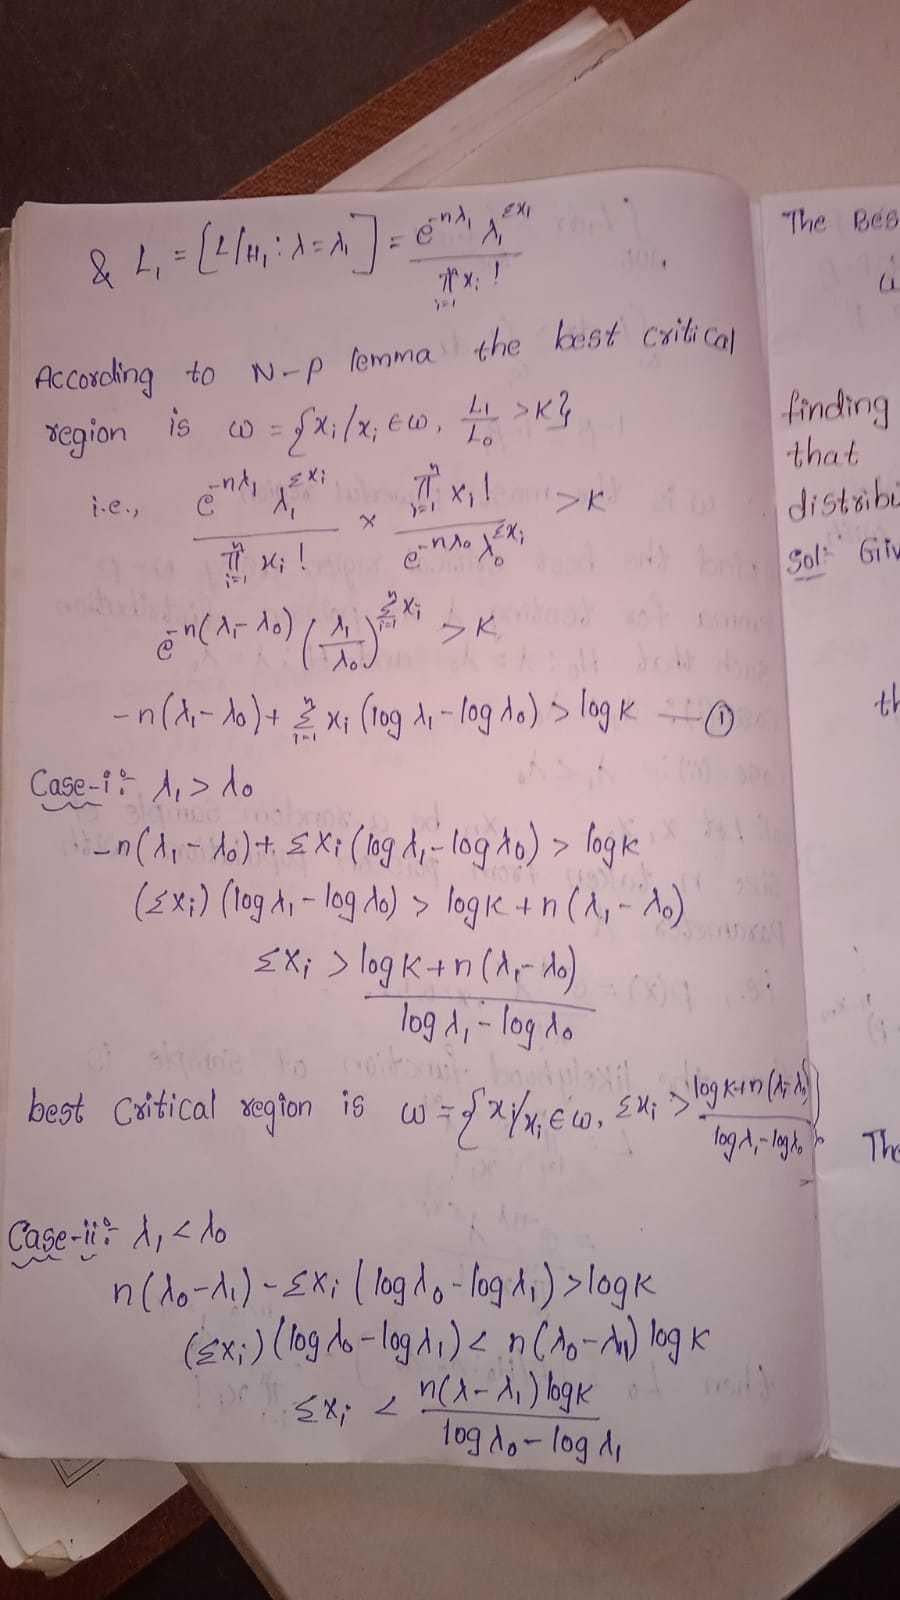 & L₁ = [L/H₁ : λ = λ₁] = e^{-nλ₁} λ₁^{Σxi} / π_{i=1}^{n} xi !
According to N-P lemma the best critical
region is ω = {xi/xi ∈ ω, L₁/L₀ > K}
i.e., e^{-nλ₁} λ₁^{Σxi} / π_{i=1}^{n} xi ! × π_{i=1}^{n} xi ! / e^{-nλ₀} λ₀^{Σxi} > K
e^{-n(λ₁-λ₀)} (λ₁/λ₀)^{Σ_{i=1}^{n} xi} > K
-n(λ₁-λ₀) + Σ_{i=1}^{n} xi (log λ₁ - log λ₀) > log K — ①
Case-i:- λ₁ > λ₀
-n(λ₁-λ₀) + Σxi (log λ₁ - log λ₀) > log K
(Σxi) (log λ₁ - log λ₀) > log K + n(λ₁-λ₀)
Σxi > log K + n(λ₁-λ₀) / log λ₁ - log λ₀
best critical region is ω = {xi/xi ∈ ω, Σxi > log K + n(λ₁-λ₀) / log λ₁ - log λ₀}
Case-ii:- λ₁ < λ₀
n(λ₀-λ₁) - Σxi (log λ₀ - log λ₁) > log K
(Σxi) (log λ₀ - log λ₁) < n(λ₀-λ₁) log K
Σxi < n(λ-λ₁) log K / log λ₀ - log λ₁
The Bes
finding
that
distribu
Sol:- Giv
th
The